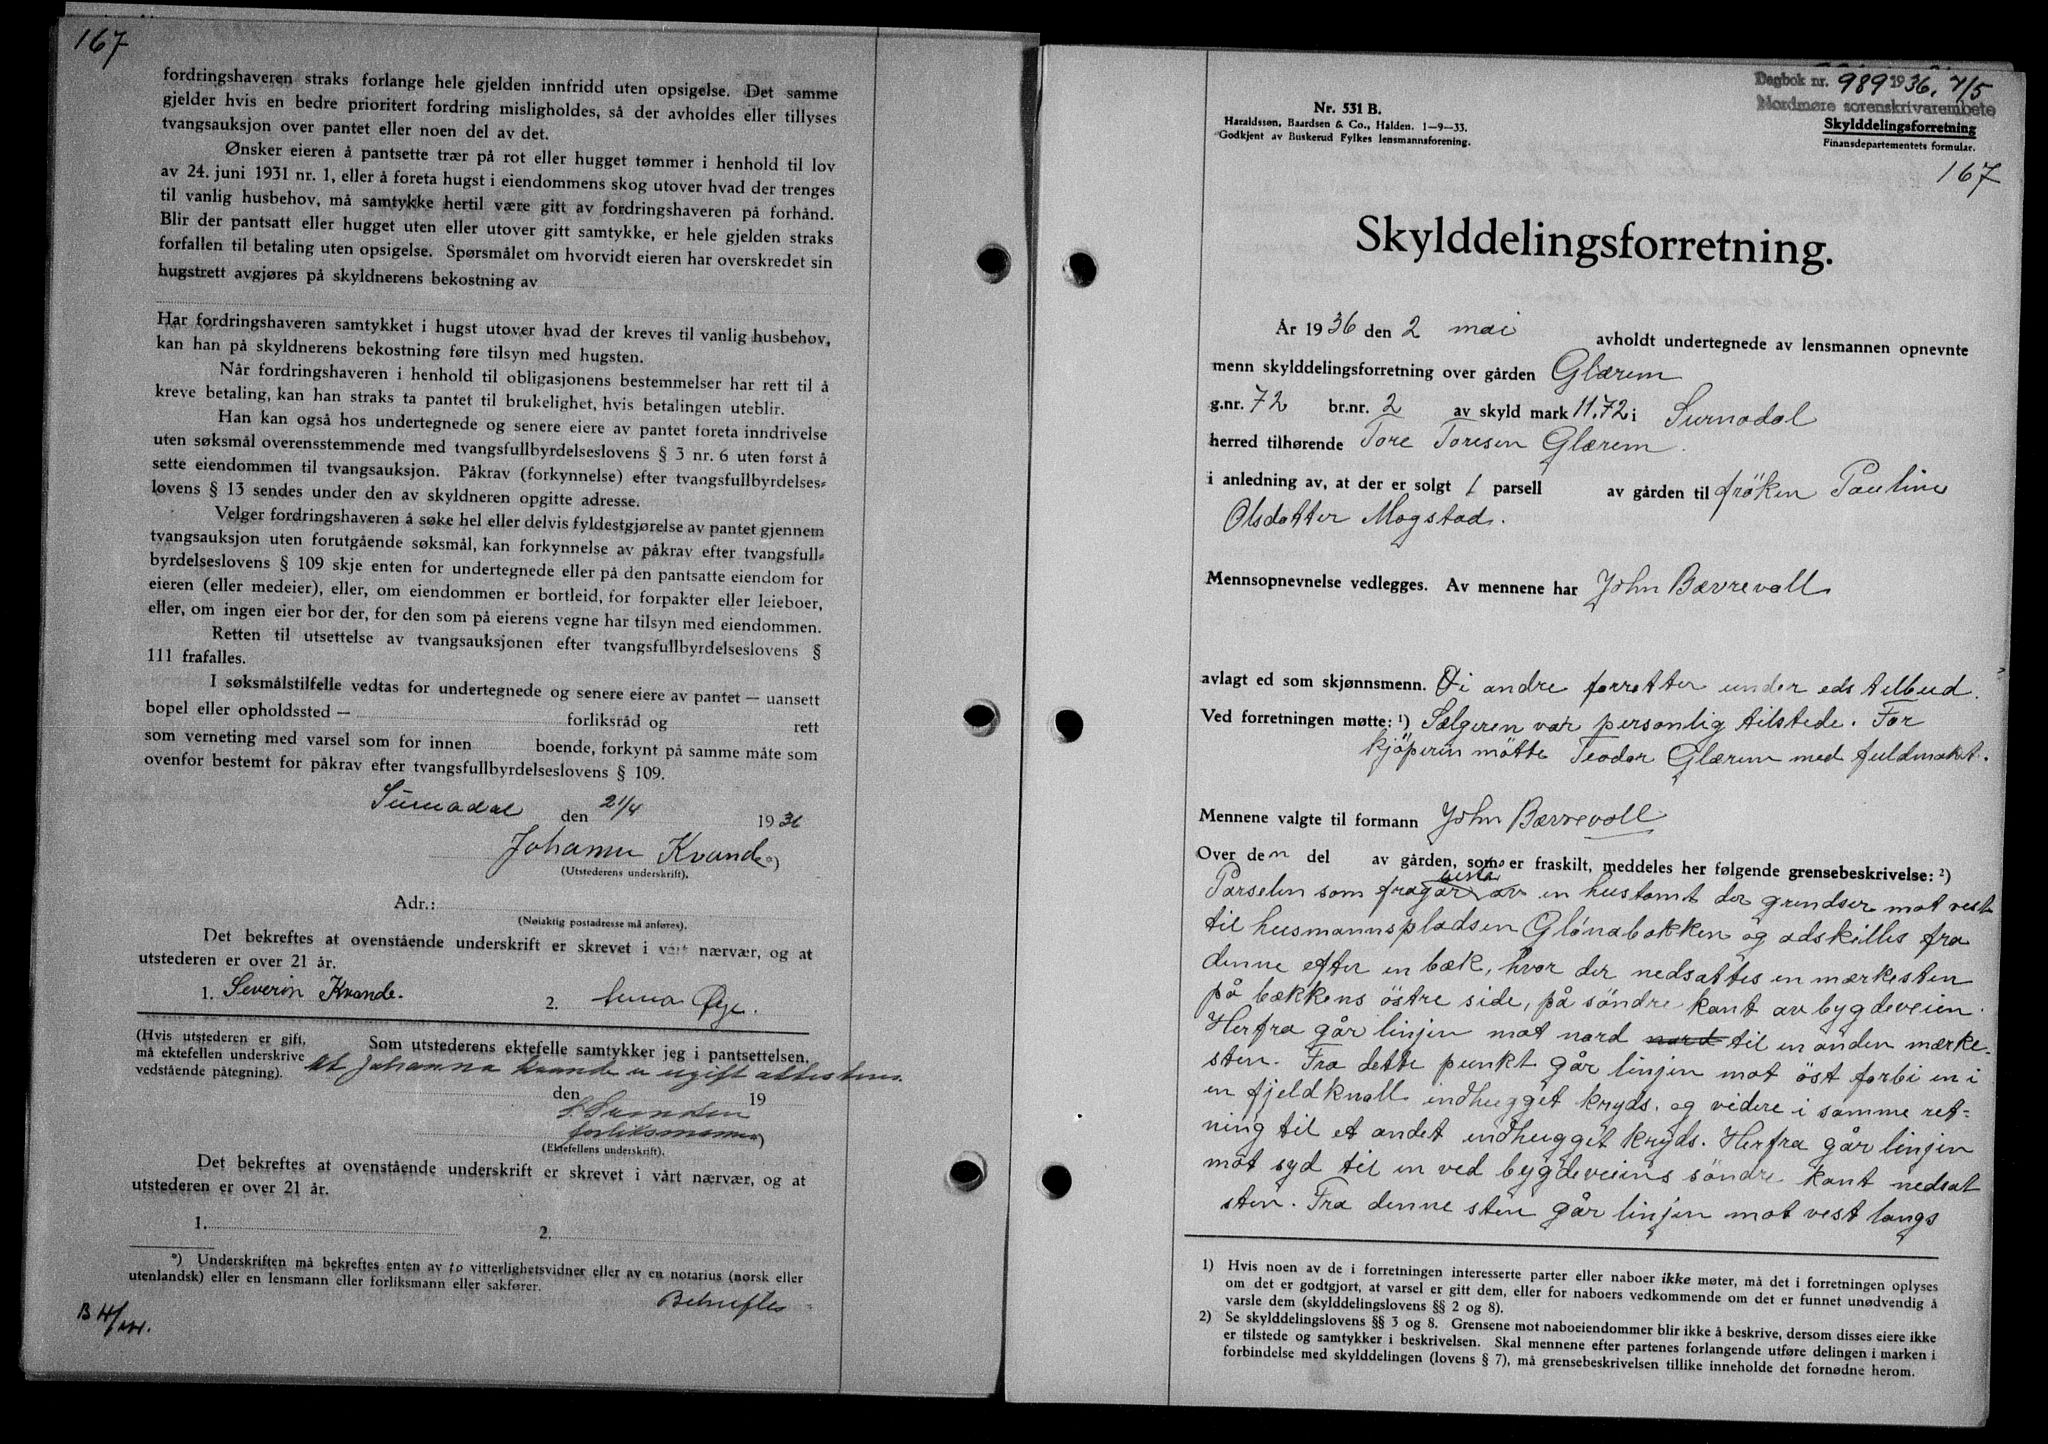 167
fordringshaveren straks forlange hele gjelden innfridd uten opsigelse. Det samme
gjelder hvis en bedre prioritert fordring misligholdes, så der avholdes eller tillyses
tvangsauksjon over pantet eller noen del av det.
Ønsker eieren å pantsette trær på rot eller hugget tømmer i henhold til lov
av 24. juni 1931 nr. 1, eller å foreta hugst i eiendommens skog utover hvad der trenges
til vanlig husbehov, må samtykke hertil være gitt av fordringshaveren på forhånd.
Blir der pantsatt eller hugget uten eller utover gitt samtykke, er hele gjelden straks
forfallen til betaling uten opsigelse. Spørsmålet om hvorvidt eieren har overskredet sin
hugstrett avgjøres på skyldnerens bekostning av
Har fordringshaveren samtykket i hugst utover hvad der kreves til vanlig husbehov,
kan han på skyldnerens bekostning føre tilsyn med hugsten.
Når fordringshaveren i henhold til obligasjonens bestemmelser har rett til å
kreve betaling, kan han straks ta pantet til brukelighet, hvis betalingen uteblir.
Han kan også hos undertegnede og senere eiere av pantet foreta inndrivelse
uten søksmål overensstemmende med tvangsfullbyrdelseslovens § 3 nr. 6 uten først å
sette eiendommen til tvangsauksjon. Påkrav (forkynnelse) efter tvangsfullbyrdelses-
lovens § 13 sendes under den av skyldneren opgitte adresse.
Velger fordringshaveren å søke hel eller delvis fyldestgjørelse av pantet gjennem
tvangsauksjon uten forutgående søksmål, kan forkynnelse av påkrav efter tvangsfull-
byrdelseslovens § 109 skje enten for undertegnede eller på den pantsatte eiendom for
eieren (eller medeier), eller, om eiendommen er bortleid, for forpakter eller leieboer,
eller, om ingen eier bor der, for den som på eierens vegne har tilsyn med eiendommen.
Retten til utsettelse av tvangsauksjonen efter tvangsfullbyrdelseslovens §
111 frafalles.
I søksmålstilfelle vedtas for undertegnede og senere eiere av pantet — uansett
bopel eller opholdssted — forliksråd og rett
som verneting med varsel som for innen boende, forkynt på samme måte som
ovenfor bestemt for påkrav efter tvangsfullbyrdelseslovens § 109.
Surnadal den 21/4 1936
Johanna Kvande *)
(Utstederens underskrift).
Adr.:
(Nøiaktig postadresse må anføres).
Det bekreftes at ovenstående underskrift er skrevet i vårt nærvær, og at
utstederen er over 21 år.
1. Severin Kvande. 2. Øye.
(Hvis utstederen er gift,
må ektefellen underskrive
vedstående påtegning).
Som utstederens ektefelle samtykker jeg i pantsettelsen.
At Johanna Kvande er ugift attesteres.
den 19
forliksmann
(Ektefellens underskrift).
Det bekreftes at ovenstående underskrift er skrevet i vårt nærvær, og at
utstederen er over 21 år.
1. 2.
*) Underskriften må bekreftes enten av to vitterlighetsvidner eller av en notarius (norsk eller
utenlandsk) eller en lensmann eller forliksmann eller sakfører.
Bekreftes
Dagbok nr. 989 1936. 7/5
Nordmøre sorenskrivarembete
Nr. 531 B.
Haraldssøn, Baardsen & Co., Halden. 1-9-33.
Godkjent av Buskerud Fylkes lensmannsforening.
Skylddelingsforretning
Finansdepartementets formular.
167
Skylddelingsforretning.
År 1936 den 2 mai avholdt undertegnede av lensmannen opnevnte
menn skylddelingsforretning over gården Glærem
g.nr. 72 br.nr. 2 av skyld mark 11,72 i Surnadal
herred tilhørende Tore Toresen Glærem.
i anledning av, at der er solgt 1 parsell av gården til frøken Pauline
Olsdatter Mogstad.
Mennsopnevnelse vedlegges. Av mennene har John Bævrevoll
avlagt ed som skjønnsmenn. De andre forretter under eds tilbud.
Ved forretningen møtte: ¹) Sælgeren var personlig tilstede. For
kjøperin møtte Teodor Glærem med fuldmakt.
Mennene valgte til formann John Bævrevoll
Over den del av gården, som er fraskilt, meddeles her følgende grensebeskrivelse: ²)
Parselen som fragår av en hustomt der grendser mot vest
til husmannspladsen Glønabakken og adskilles fra
denne efter en bæk, hvor der nedsattes en mærkesten
på bækkens østre side, på søndre kant av bygdeveien.
Herfra går linjen mot nord nord til en anden mærke-
sten. Fra dette punkt går linjen mot øst forbi en i
en fjeldknall indhugget kryds, og videre i samme ret-
ning til et andet indhugget kryds. Herfra går linjen
mot syd til en ved bygdeveiens søndre kant nedsat
sten. Fra denne sten går linjen mot vest langs
1) Hvis noen av de i forretningen interesserte parter eller naboer ikke møter, må det i forretningen oplyses
om det er godtgjort, at varsel er gitt dem, eller for naboers vedkommende om det er funnet unødvendig å
varsle dem (skylddelingslovens §§ 2 og 8).
2) Se skylddelingslovens §§ 3 og 8. Grensene mot naboeiendommer blir ikke å beskrive, dersom disses eiere ikke
er tilstede og samtykker i beskrivelsen. Skal mennene efter partenes forlangende utføre delingen i marken i
forbindelse med skylddelingen (lovens § 7), må grensebeskrivelsen tillike inneholde det fornødne herom.